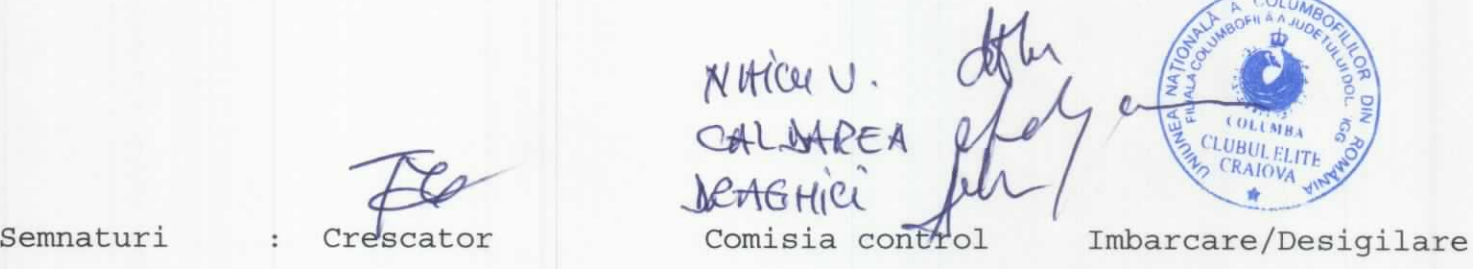 NUICU V.
CALDAREA
DRAGHICI
UNIUNEA NAȚIONALĂ A COLUMBOFILILOR DIN ROMÂNIA
FILIALA COLUMBOFILĂ A JUDEȚULUI DOLJ
COLUMBA
CLUBUL ELITE
CRAIOVA
Semnaturi : Crescator Comisia control Imbarcare/Desigilare